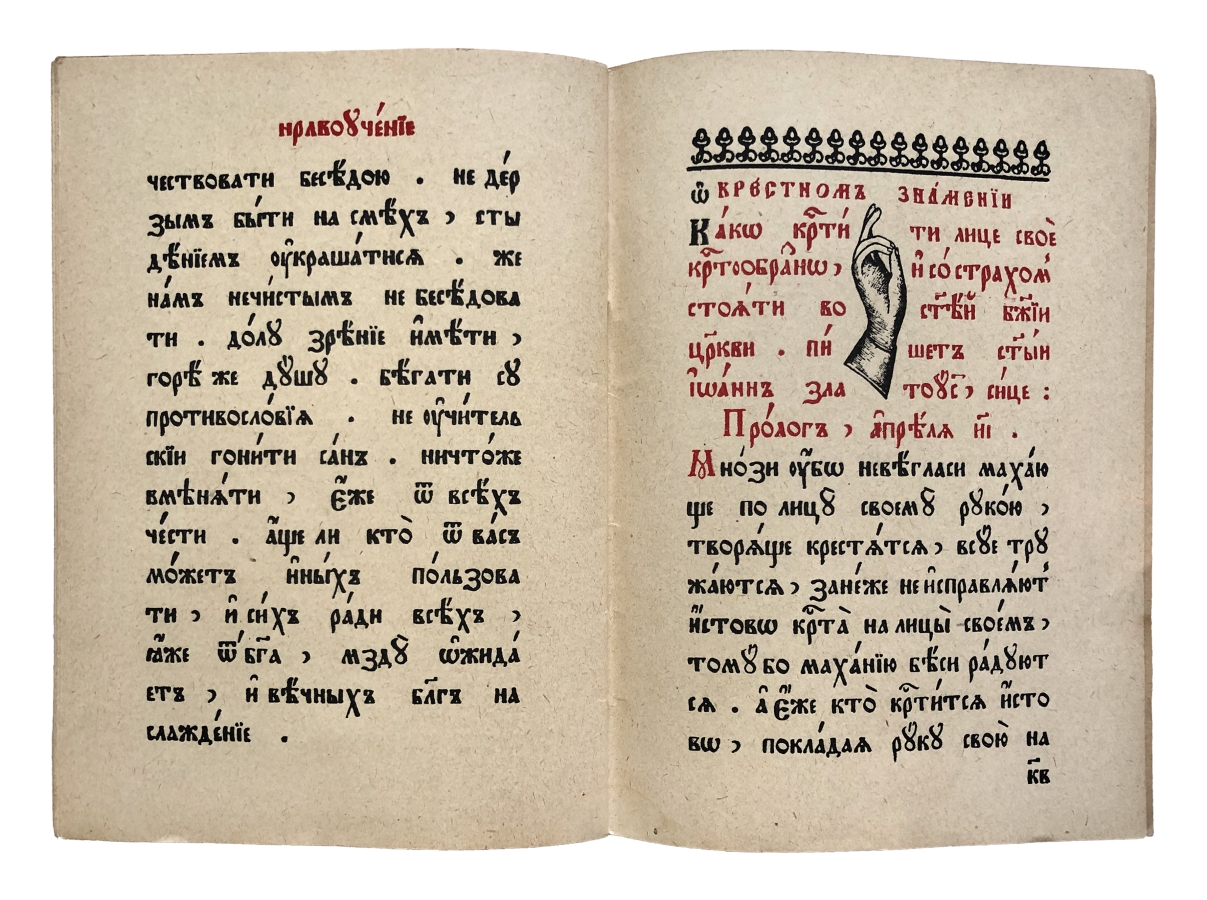 нравоꙋче́нїе
чествовати бесѣ́дою . не де́р
зымъ бы́ти на смѣ́хъ , сты
дѣ́нїемъ ᲂу҆краша́тисѧ . же
на́мъ нечи́стымъ не бесѣ́дова
ти . до́лꙋ зрѣ́нїе и҆мѣ́ти ,
горѣ́ же дꙋ́шꙋ . бѣ́гати сꙋ
противосло́вїѧ . не ᲂу҆чи́тель
скїи гони́ти са́нъ . ничто́же
вмѣнѧ́ти , є҆́же ѿ всѣ́хъ
че́сти . а҆́ще ли кто̀ ѿ ва́съ
мо́жетъ и҆ны́хъ по́льзова
ти , и҆ си́хъ ра́ди всѣ́хъ ,
ꙗ҆́же ѿ бг҃а , мздꙋ̀ ѡ҆жида́
етъ , и҆ вѣ́чныхъ бл҃гъ на
слажде́нїе .
ѡ҆ кре́стномъ зна́менїи
Ка́кѡ кр҇ти́ ти лице своѐ
кр҇тообра́знѡ , и҆ со стра́хом
стоѧ́ти во ст҃ѣ́й бж҃їи
цр҃кви . пи́ шетъ ст҃ы́и
і҆ѡа́ннъ зла тоꙋ́с , си́це :
Про́логъ , а҆прѣ́лѧ и҃і .
Мно́зи ᲂу҆́бѡ невѣ́гласи маха́ю
ще по лицꙋ̀ своемꙋ̀ рꙋко́ю ,
творѧ́ще крестѧ́тсѧ , всꙋ́е трꙋ
жа́ютсѧ , зане́же не и҆справлѧ́ют
и҆́стовѡ кр҇та̀ на лицы̀ свое́мъ ,
томꙋ́ бо маха́нїю бѣ́си ра́дꙋют
сѧ . а҆ є҆́же кто̀ кр҇ти́тсѧ и҆́сто
вѡ , покла́даѧ рꙋ́кꙋ свою̀ на
к҃в